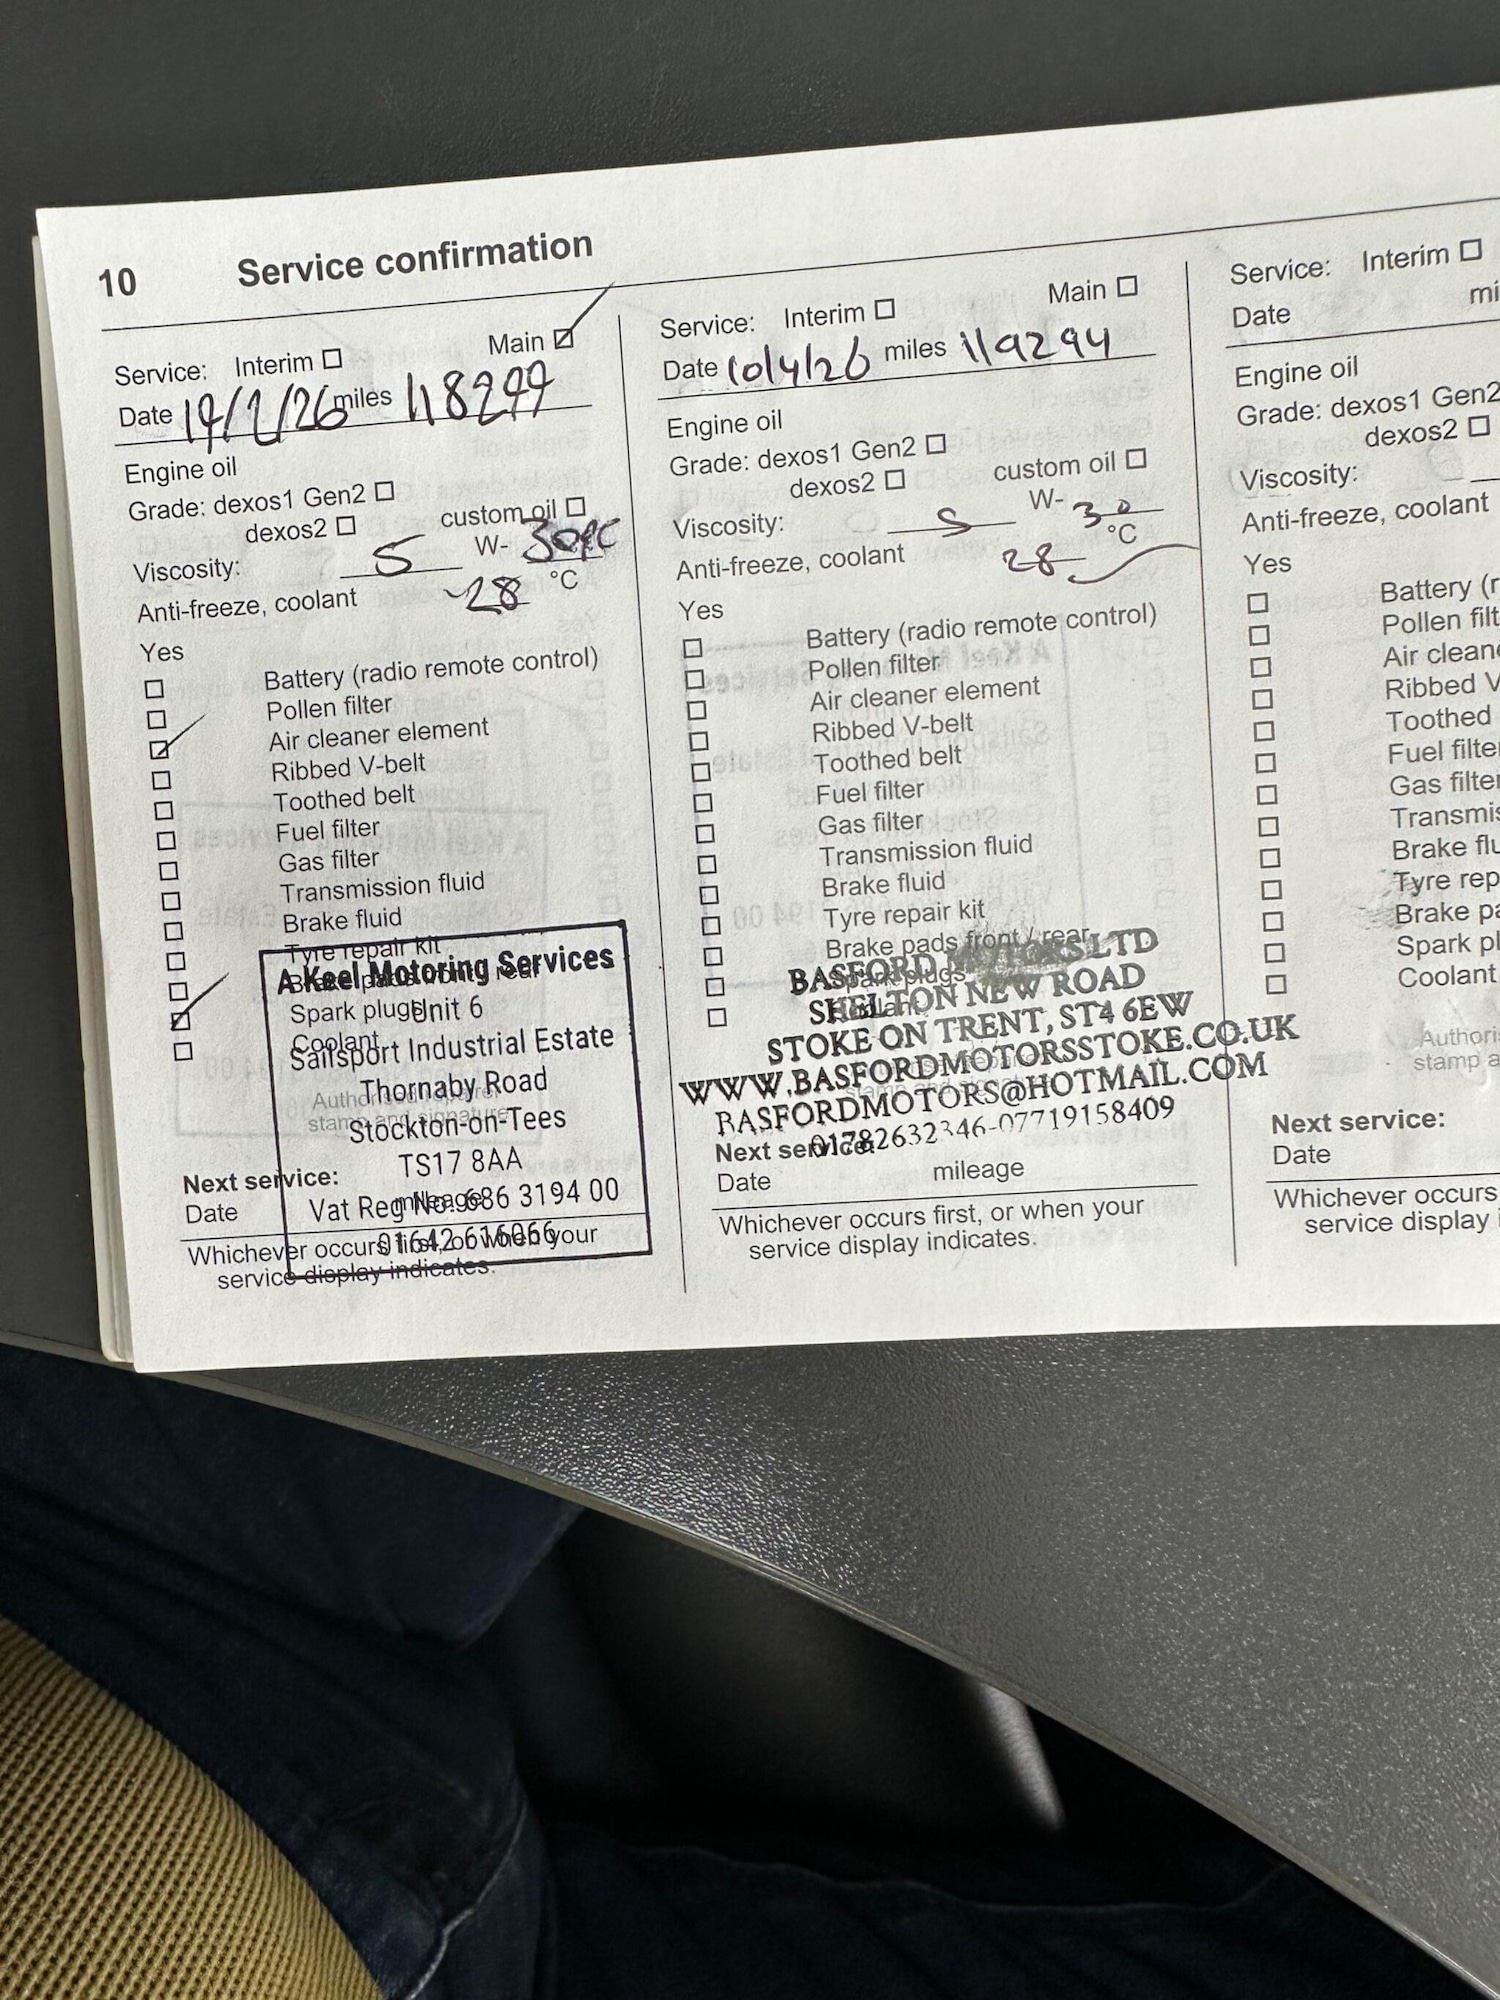 10 Service confirmation
Service: Interim ☐ Main ☑
Date 19/1/26 miles 118299
Engine oil
Grade: dexos1 Gen2 ☐
dexos2 ☐ custom oil ☐
Viscosity: 5 W- 30
Anti-freeze, coolant -28 °C
Yes
☐ Battery (radio remote control)
☐ Pollen filter
☑ Air cleaner element
☐ Ribbed V-belt
☐ Toothed belt
☐ Fuel filter
☐ Gas filter
☐ Transmission fluid
☐ Brake fluid
☐ Tyre repair kit
☐ Brake pads front / rear
☑ Spark plugs
☐ Coolant
Authorised repairer
stamp and signature
A Keel Motoring Services
Unit 6
Sailsport Industrial Estate
Thornaby Road
Stockton-on-Tees
TS17 8AA
Vat Reg No. 686 3194 00
01642 616066
Next service:
Date mileage
Whichever occurs first, or when your
service display indicates.
Service: Interim ☐ Main ☐
Date 10/4/26 miles 119294
Engine oil
Grade: dexos1 Gen2 ☐
dexos2 ☐ custom oil ☐
Viscosity: 5 W- 30
Anti-freeze, coolant 28 °C
Yes
☐ Battery (radio remote control)
☐ Pollen filter
☐ Air cleaner element
☐ Ribbed V-belt
☐ Toothed belt
☐ Fuel filter
☐ Gas filter
☐ Transmission fluid
☐ Brake fluid
☐ Tyre repair kit
☐ Brake pads front / rear
☐ Spark plugs
☐ Coolant
stamp and
BASFORD MOTORS LTD
SHELTON NEW ROAD
STOKE ON TRENT, ST4 6EW
WWW.BASFORDMOTORSSTOKE.CO.UK
BASFORDMOTORS@HOTMAIL.COM
01782632346-07719158409
Next service:
Date mileage
Whichever occurs first, or when your
service display indicates.
Service: Interim ☐
Date mi
Engine oil
Grade: dexos1 Gen2
dexos2 ☐
Viscosity:
Anti-freeze, coolant
Yes
☐ Battery (r
☐ Pollen filt
☐ Air cleane
☐ Ribbed V
☐ Toothed
☐ Fuel filte
☐ Gas filte
☐ Transmis
☐ Brake flu
☐ Tyre rep
☐ Brake pa
☐ Spark pl
☐ Coolant
Authoris
stamp a
Next service:
Date
Whichever occurs
service display i